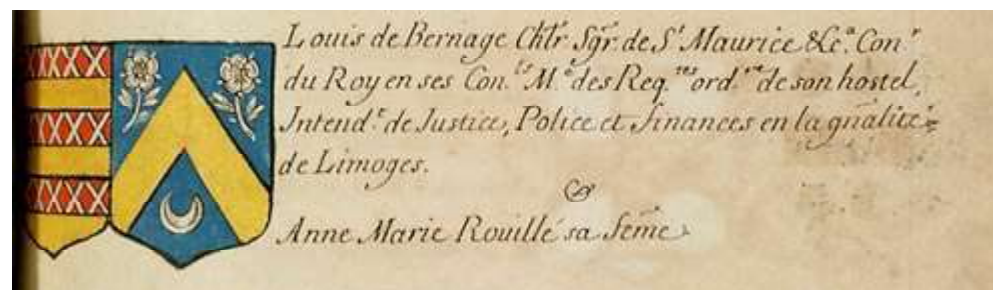 Louis de Bernage Chlr Sgr de St Maurice &c.a Con.r
du Roy en ses Con.ls M.e des Req.tes ord.re de son hostel,
Intend.t de Justice, Police et finances en la gnalité
de Limoges.
&
Anne Marie Rouillé sa feme